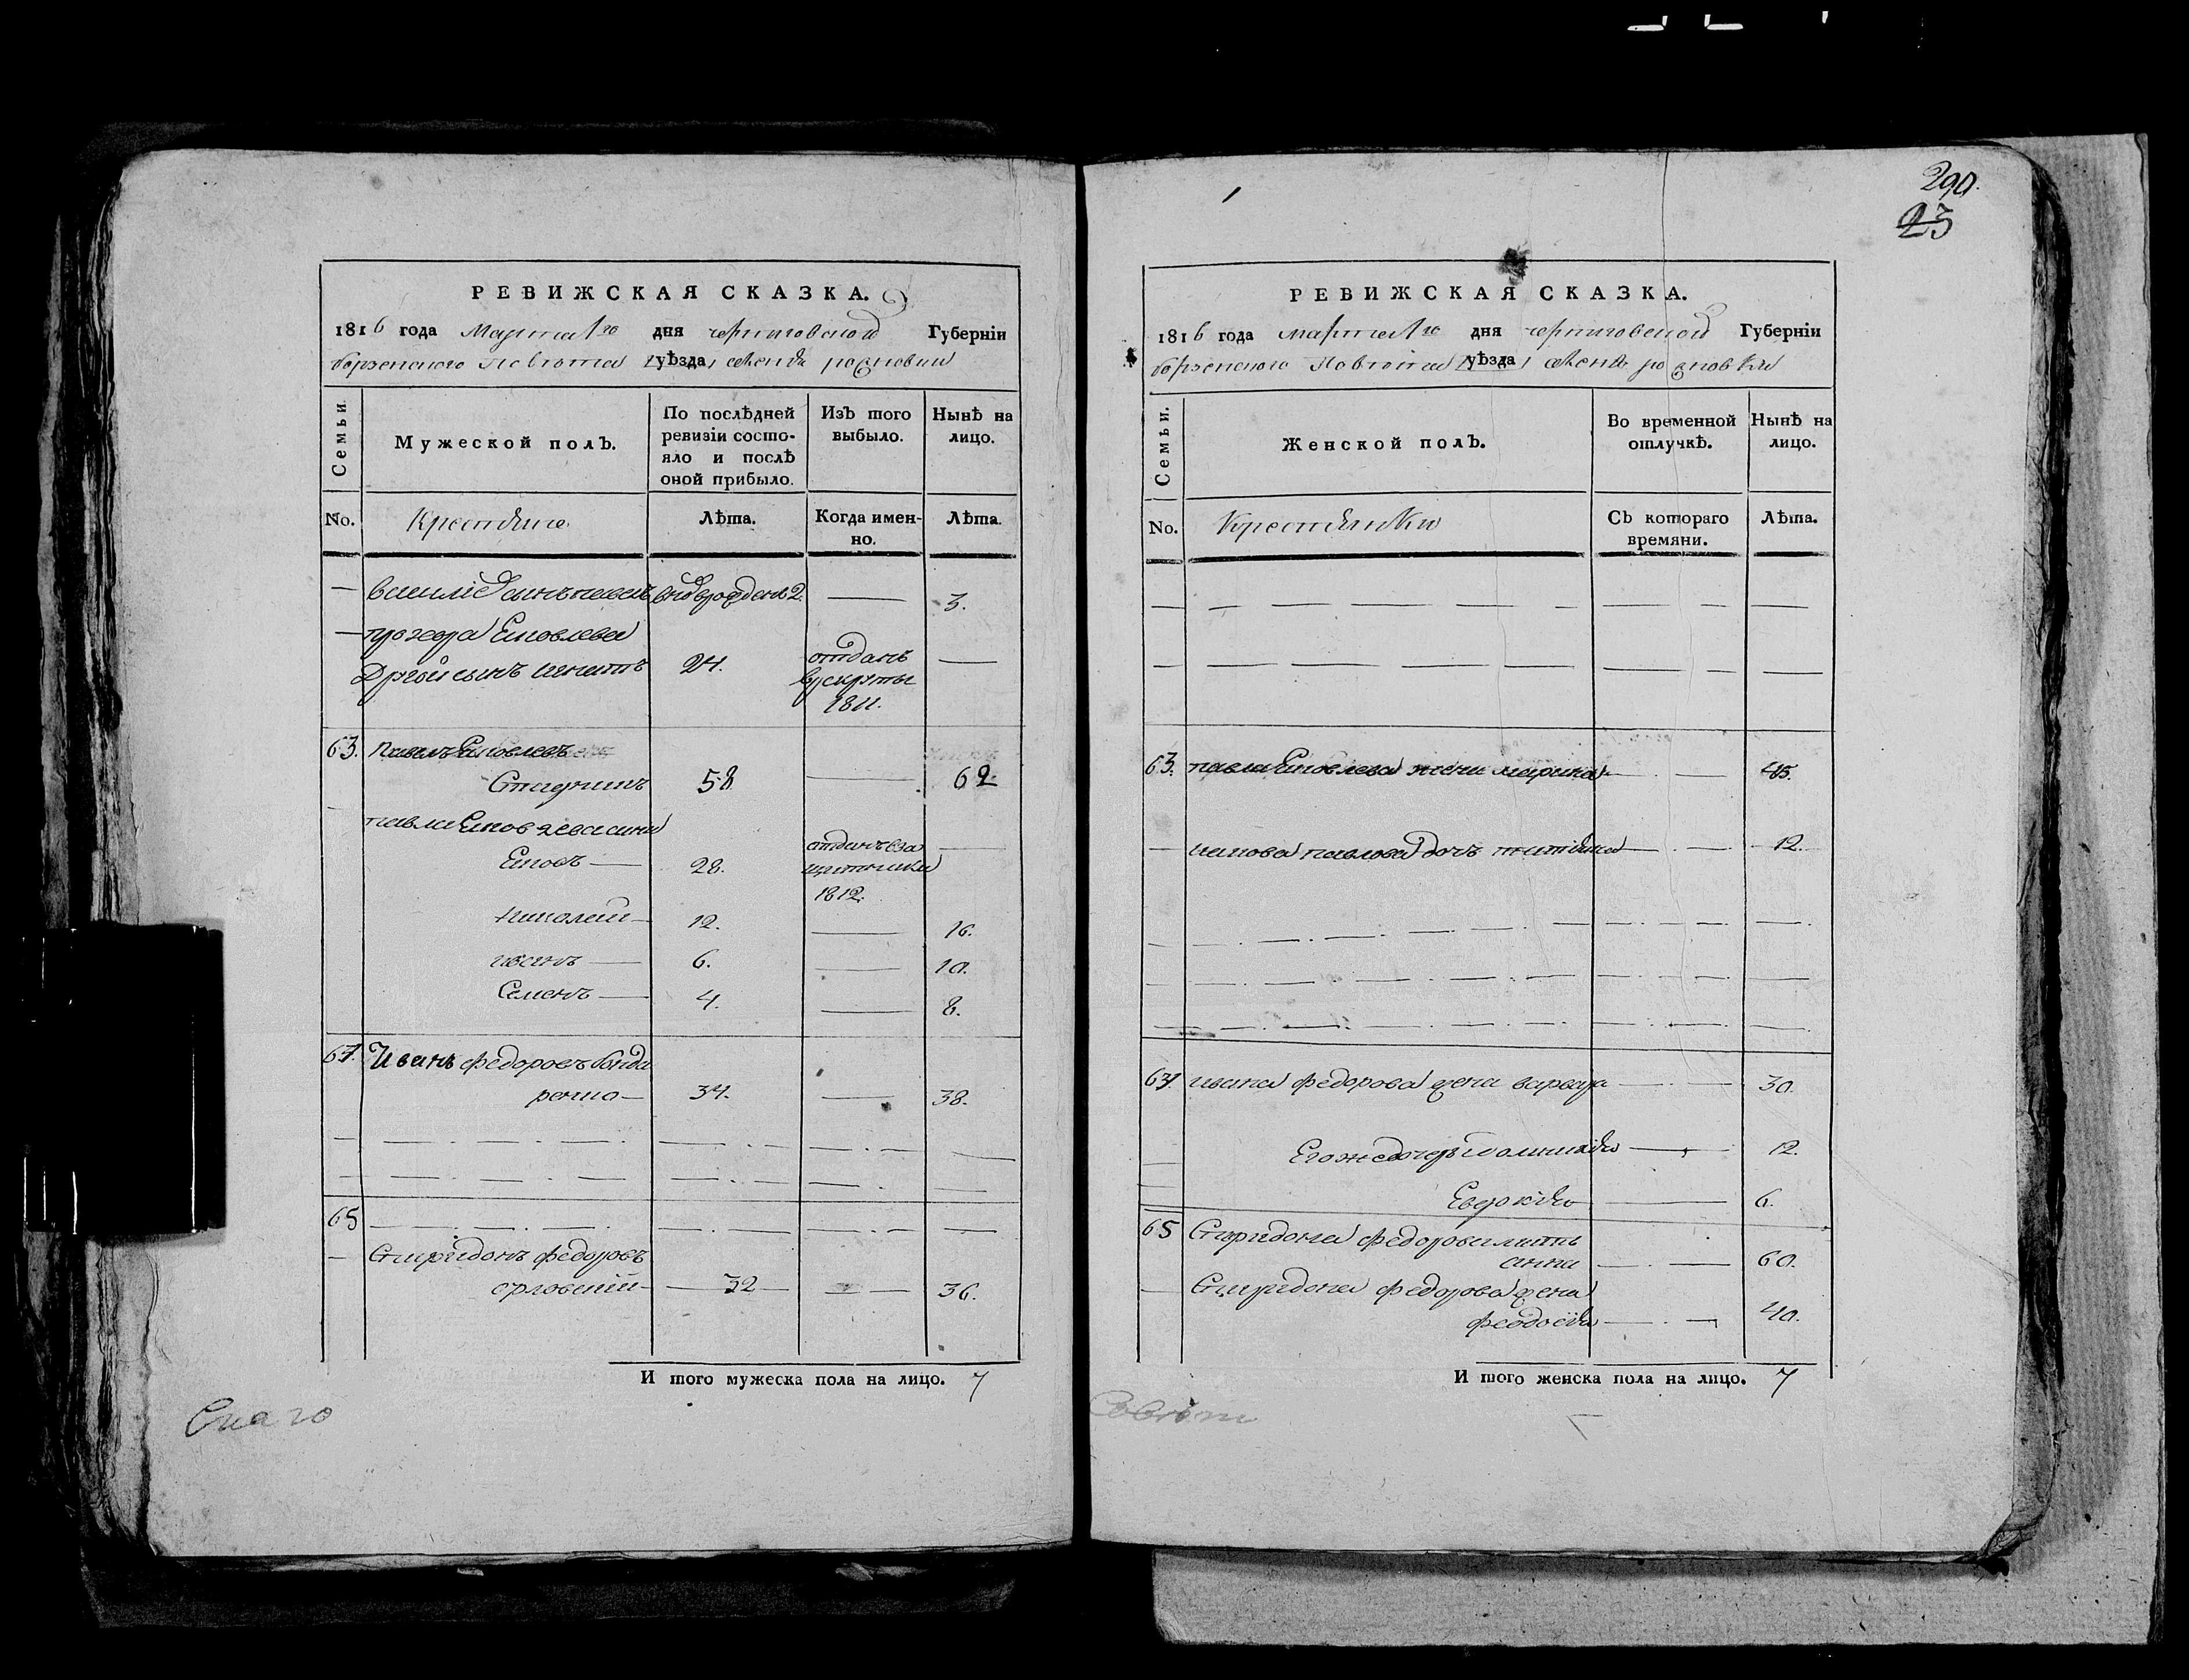 290.
23
РЕВИЖСКАЯ СКАЗКА.
1816 года Марта 1го дня черниговской Губерніи
борзенского повѣта уѣзда,
Семьи.
Мужеской полъ.
По послѣдней
ревизіи состо-
яло и послѣ
оной прибыло.
Изъ того
выбыло.
Нынѣ на
лицо.
No.
Крестьяне
Лѣта.
Когда имен-
но.
Лѣта.
— Василіе сынъ павелъ — 3.
— прохора Яковлева
Другой сынъ игнатъ 24. отданъ —
в рекруты
1811.
63. павелъ Яковлевъ
58 — 62
павла Яковлева сини
Яковъ — 28. отданъ
1812.
николай — 12. — 16.
иванъ — 6. — 10.
Семенъ — 4. — 8.
64. Иванъ федоровъ бонда
ренко — 34. — 38.
65 — — —
— Спиридонъ федоровъ
орловскій — 32 — — 36.
И того мужеска пола на лицо. 7
РЕВИЖСКАЯ СКАЗКА.
1816 года марта 1го дня черниговской Губерніи
борзенского повѣта уѣзда,
Семьи.
Женской полъ.
Во временной
отлучкѣ.
Нынѣ на
лицо.
No.
Крестьянки
Съ котораго
времяни.
Лѣта.
63. павла Яковлева жена марина — 45.
— павлова дочь — 12.
64 ивана федорова жена варвара — 30.
Его же дочери — 12.
Евдокія — 6.
65 Спиридона федорова мать
анна — 60.
— Спиридона федорова жена
феодосія — 40.
И того женска пола на лицо. 7